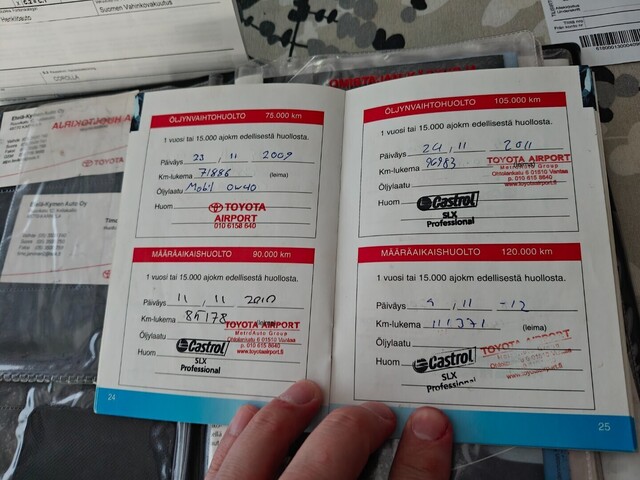 Henkilöauto
Suomen Vahinkovakuutus
COROLLA
Etelä-Kymen Auto Oy
TOYOTA
Etelä-Kymen Auto Oy
ÖLJYNVAIHTOHUOLTO 75.000 km
1 vuosi tai 15.000 ajokm edellisestä huollosta.
Päiväys 23 , 11 2009
Km-lukema 71886 (leima)
Öljylaatu Mobil 0w40
Huom
TOYOTA
AIRPORT
010 6158 640
MÄÄRÄAIKAISHUOLTO 90.000 km
1 vuosi tai 15.000 ajokm edellisestä huollosta.
Päiväys 11 , 11 2010
Km-lukema 85178 (leima)
TOYOTA AIRPORT
MetroAuto Group
Ohtolankatu 6 01510 Vantaa
p. 010 615 8640
www.toyotaairport.fi
Öljylaatu
Huom
Castrol
SLX
Professional
24
ÖLJYNVAIHTOHUOLTO 105.000 km
1 vuosi tai 15.000 ajokm edellisestä huollosta.
Päiväys 24 , 11 2011
Km-lukema 96983
TOYOTA AIRPORT
MetroAuto Group
Ohtolankatu 6 01510 Vantaa
p. 010 615 8640
www.toyotaairport.fi
Öljylaatu
Huom
Castrol
SLX
Professional
MÄÄRÄAIKAISHUOLTO 120.000 km
1 vuosi tai 15.000 ajokm edellisestä huollosta.
Päiväys 9 , 11 -12
Km-lukema 111371 (leima)
Öljylaatu
Huom
Castrol
SLX
Professional
TOYOTA AIRPORT
25